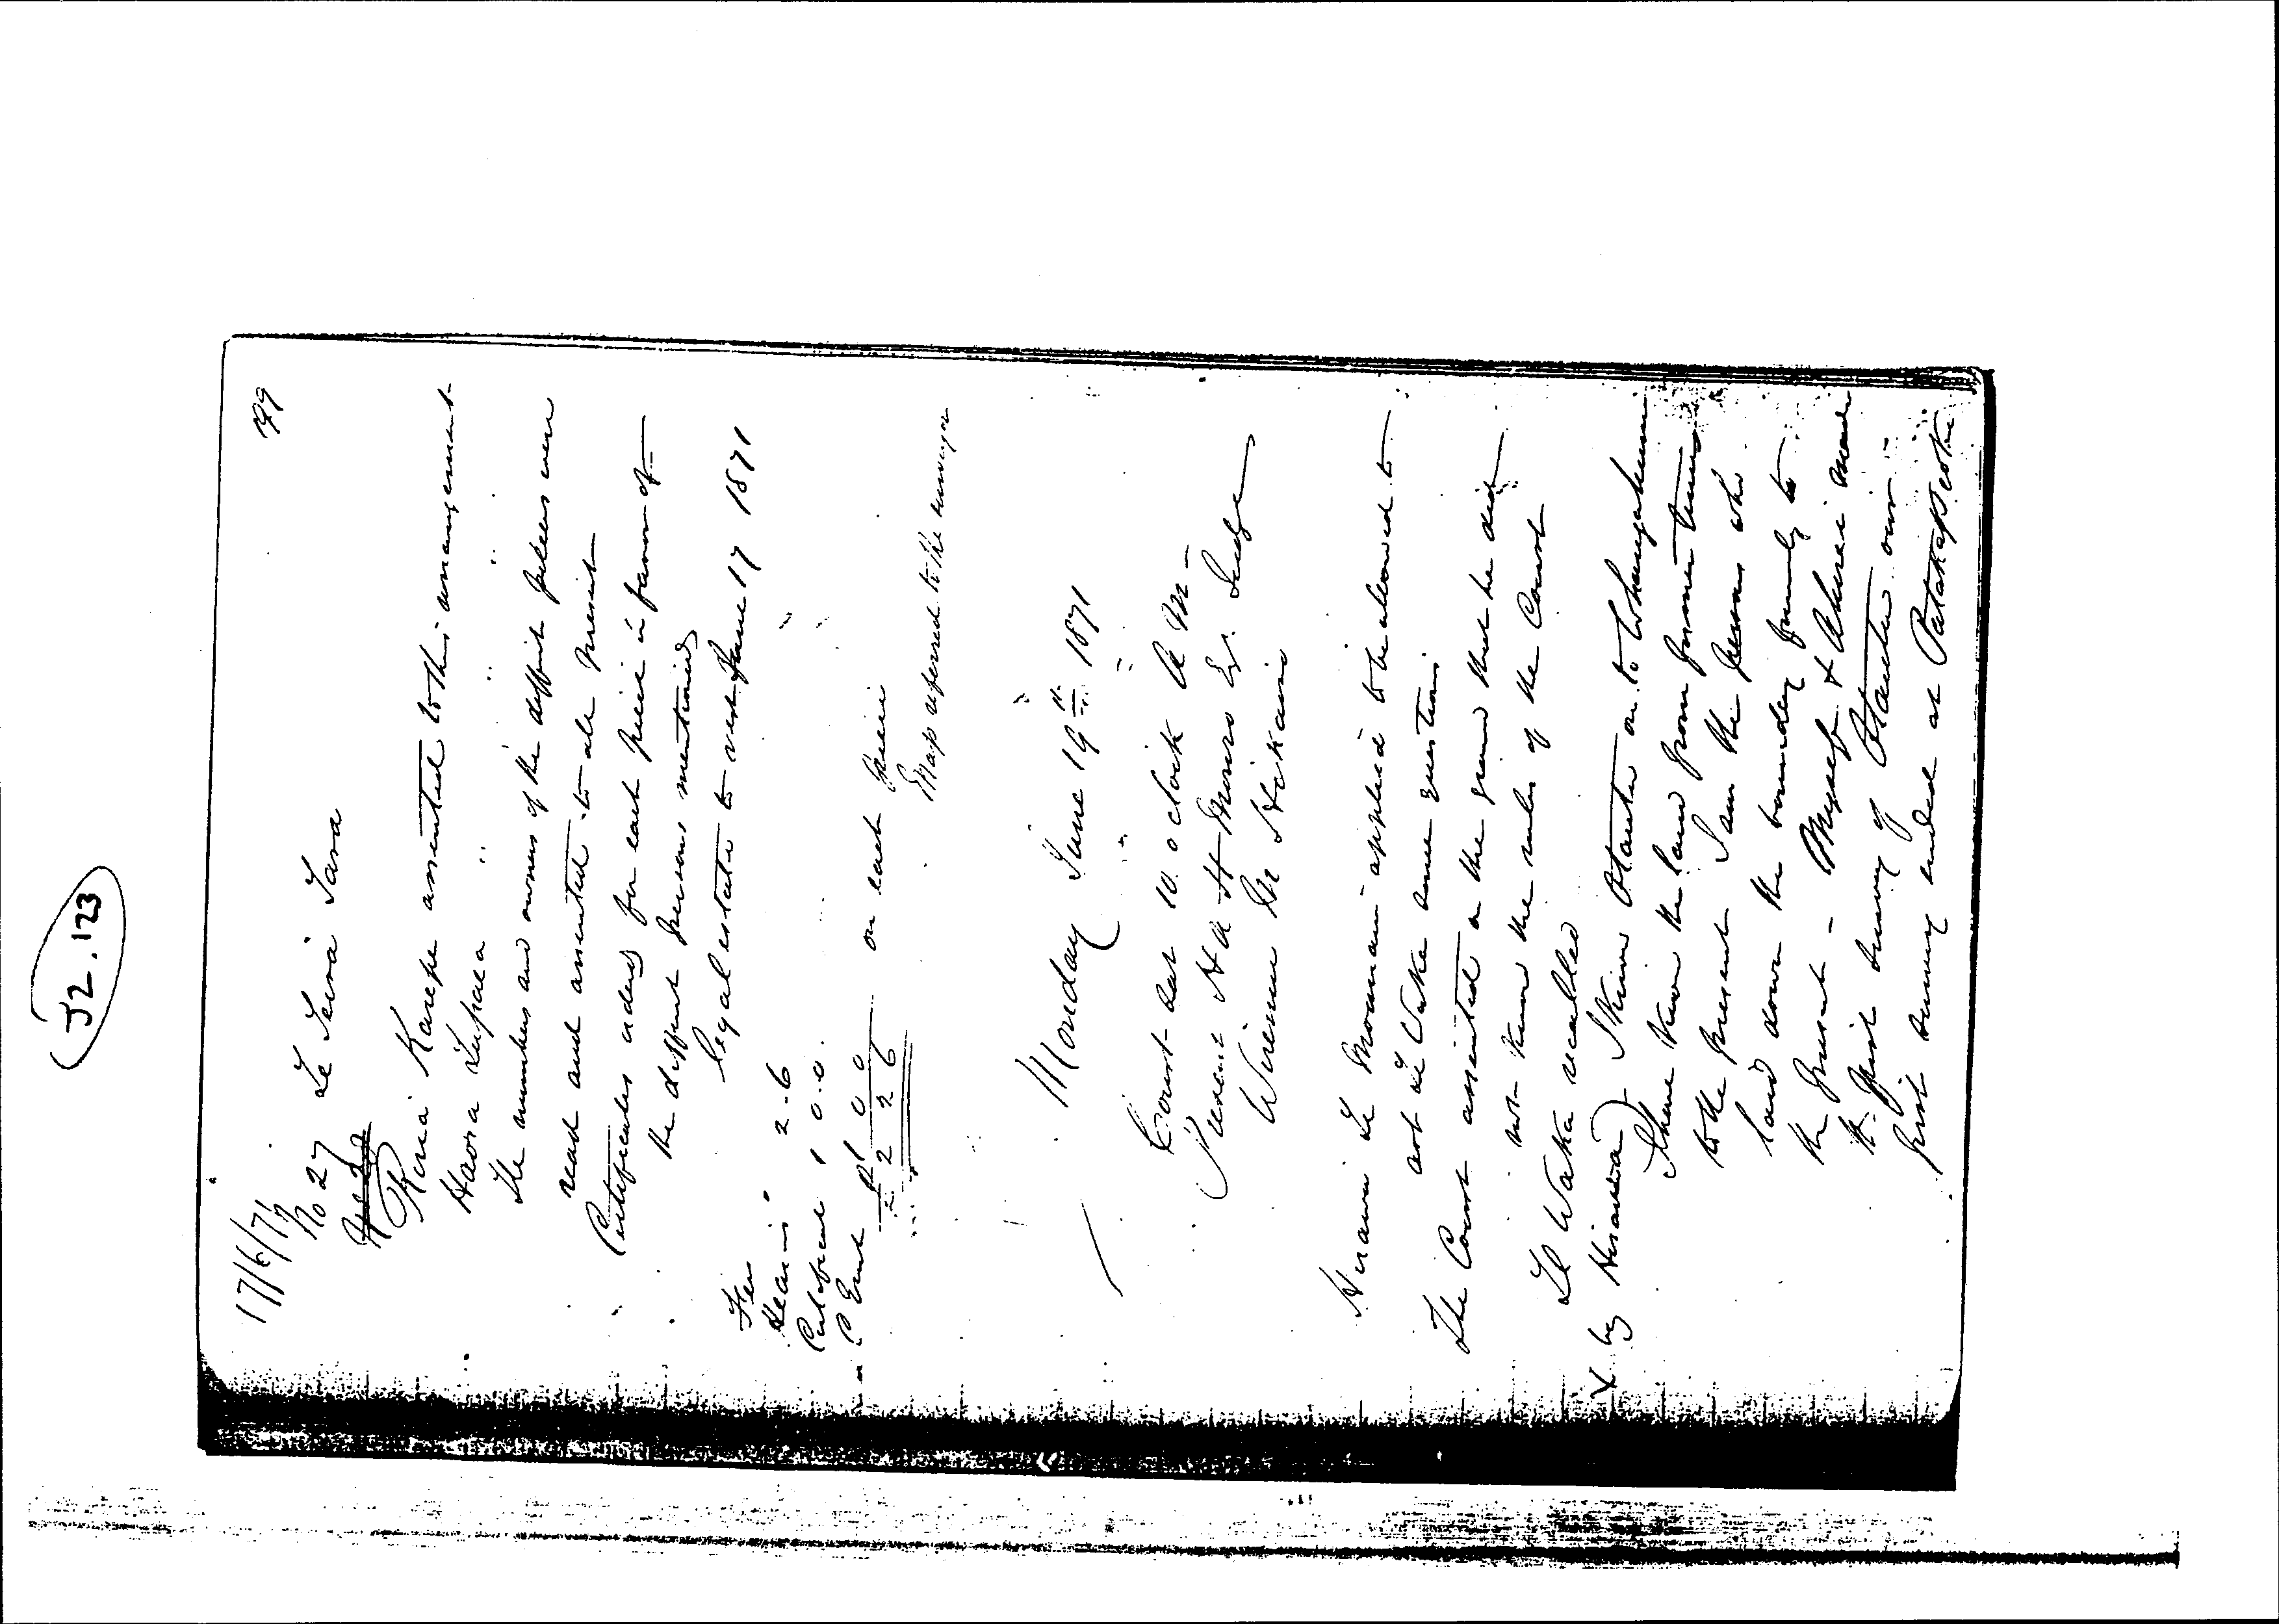 J2.123
17/6/71
99
No 27 Te Teira Tara
Keria Karepe assented to this arrangement
Haora Tupaea " " " "
The numbers and owners of the diffnt pieces were
read and assented to all present
Certificates ordered for each piece in favor of
the diffrent persons mentioned
legal estate to vest June 17 1871
Fees
Hearing 2.6
Certificate 1 0.0.
C Grant 1 0 0 on each piece
£2 2 6
Map referred to the surveyor
Monday June 19th 1871
Court sat 10. oclock A M
Present H A H Monro Esq. Judge
Wiremu Te
Hirawa Te Moananui applied to be allowed to
ask Te Waka some questions
The Court assented on the ground that he did
not know the rules of the Court
Te Waka recalled
X by Hirawa) I know Otautu on to Whangahumi
I have known the land from former times
to the present I am the person who
laid down the boundary formerly to
the present - Myself & made
the first survey of Otautu our
first survey ended at